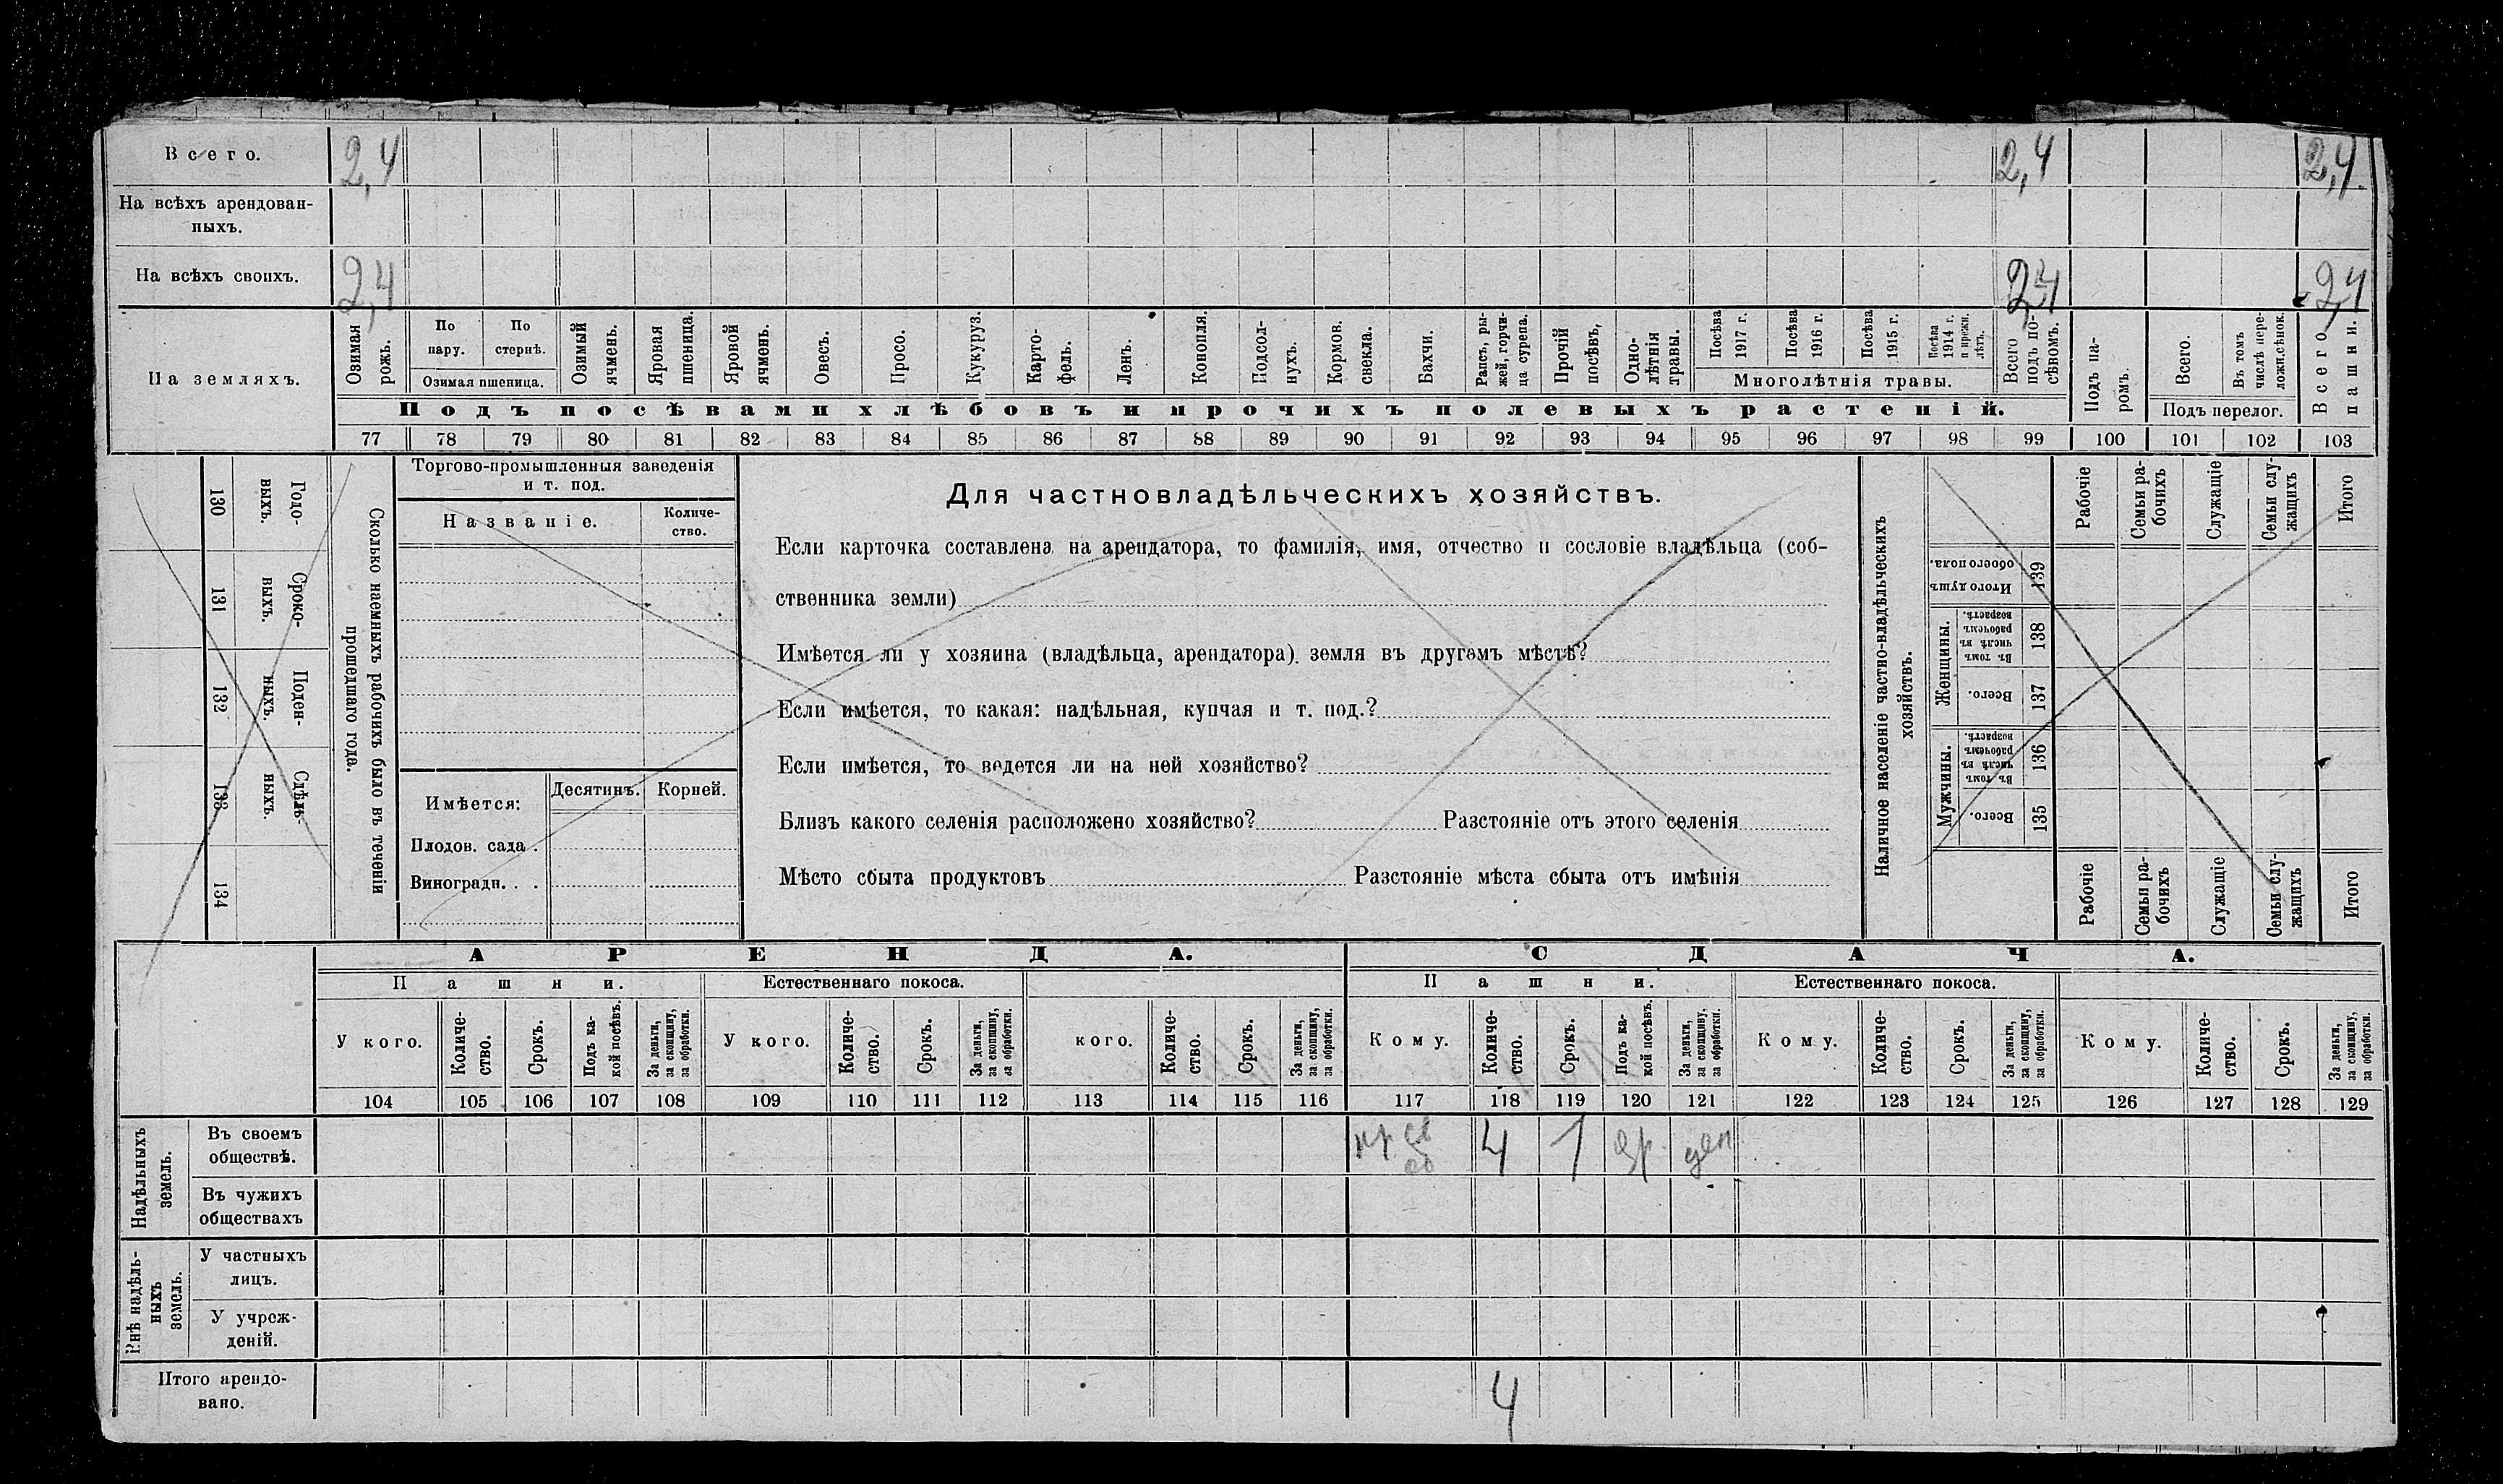 Всего. 2,4 2,4 2,4
На всѣхъ арендован-
ныхъ.
На всѣхъ своихъ. 2,4 2,4 2,4
На земляхъ.
Озимая
рожь.
По
пару.
По
стернѣ.
Озимая пшеница.
Озимый
ячмень.
Яровая
пшеница.
Яровой
ячмень.
Овесъ.
Просо.
Кукуруз.
Карто-
фель.
Ленъ.
Конопля.
Подсол-
нухъ.
Кормов.
свекла.
Бахчи.
Рапсъ, ры-
жей, горчи-
ца сурепа.
Прочій
посѣвъ,
Одно-
лѣтнія
травы.
Посѣва
1917 г.
Посѣва
1916 г.
Посѣва
1915 г.
Посѣва
1914 г.
и прежн.
лѣтъ.
Многолѣтнія травы.
Всего
подъ по-
сѣвомъ.
Подъ па-
ромъ.
Всего.
Въ томъ
числѣ пере-
лож.сѣнок.
Подъ перелог.
Всего
пашни.
Подъ посѣвами хлѣбовъ и прочихъ полевыхъ растеній.
77 78 79 80 81 82 83 84 85 86 87 88 89 90 91 92 93 94 95 96 97 98 99 100 101 102 103
130 Годо-
выхъ.
131 Сроко-
выхъ.
132 Поден-
ныхъ.
133 Сдѣль-
ныхъ.
134
Сколько наемныхъ рабочихъ было въ теченіи
прошедшаго года.
Торгово-промышленныя заведенія
и т. под.
Названіе.
Количе-
ство.
Имѣется:
Десятинъ. Корней.
Плодов. сада .
Виноградн. . .
Для частновладѣльческихъ хозяйствъ.
Если карточка составлена на арендатора, то фамилія, имя, отчество и сословіе владѣльца (соб-
ственника земли)
Имѣется ли у хозяина (владѣльца, арендатора). земля въ другомъ мѣстѣ?
Если имѣется, то какая: надѣльная, купчая и т. под.?
Если имѣется, то ведется ли на ней хозяйство?
Близъ какого селенія расположено хозяйство? Разстояніе отъ этого селенія
Мѣсто сбыта продуктовъ Разстояніе мѣста сбыта отъ имѣнія
Наличное населеніе частно-владѣльческихъ
хозяйствъ.
Рабочіе
Семьи ра-
бочихъ
Служащіе
Семьи слу-
жащихъ
Итого
Итого душъ
обоего пола.
139
Женщины.
Въ томъ
числѣ въ
рабочемъ
возрастѣ.
138
Всего.
137
Мужчины.
Въ томъ
числѣ въ
рабочемъ
возрастѣ.
136
Всего.
135
Рабочіе
Семьи ра-
бочихъ
Служащіе
Семьи слу-
жащихъ
Итого
АРЕНДА. СДАЧА.
Пашни. Естественнаго покоса. Пашни. Естественнаго покоса.
У кого.
Количе-
ство.
Срокъ.
Подъ ка-
кой посѣвъ.
За деньги,
за скопщину,
за обработки.
У кого.
Количе-
ство.
Срокъ.
За деньги,
за скопщину,
за обработки.
кого.
Количе-
ство.
Срокъ.
За деньги,
за скопщину,
за обработки.
Кому.
Количе-
ство.
Срокъ.
Подъ ка-
кой посѣвъ.
За деньги,
за скопщину,
за обработки.
Кому.
Количе-
ство.
Срокъ.
За деньги,
за скопщину,
за обработки.
Кому.
Количе-
ство.
Срокъ.
За деньги,
за скопщину,
за обработки.
104 105 106 107 108 109 110 111 112 113 114 115 116 117 118 119 120 121 122 123 124 125 126 127 128 129
Надѣльныхъ
земель.
Въ своемъ
обществѣ.
4 1
Въ чужихъ
обществахъ
Внѣ надѣль-
ныхъ
земель.
У частныхъ
лицъ.
У учреж-
деній.
Итого арендо-
вано.
4